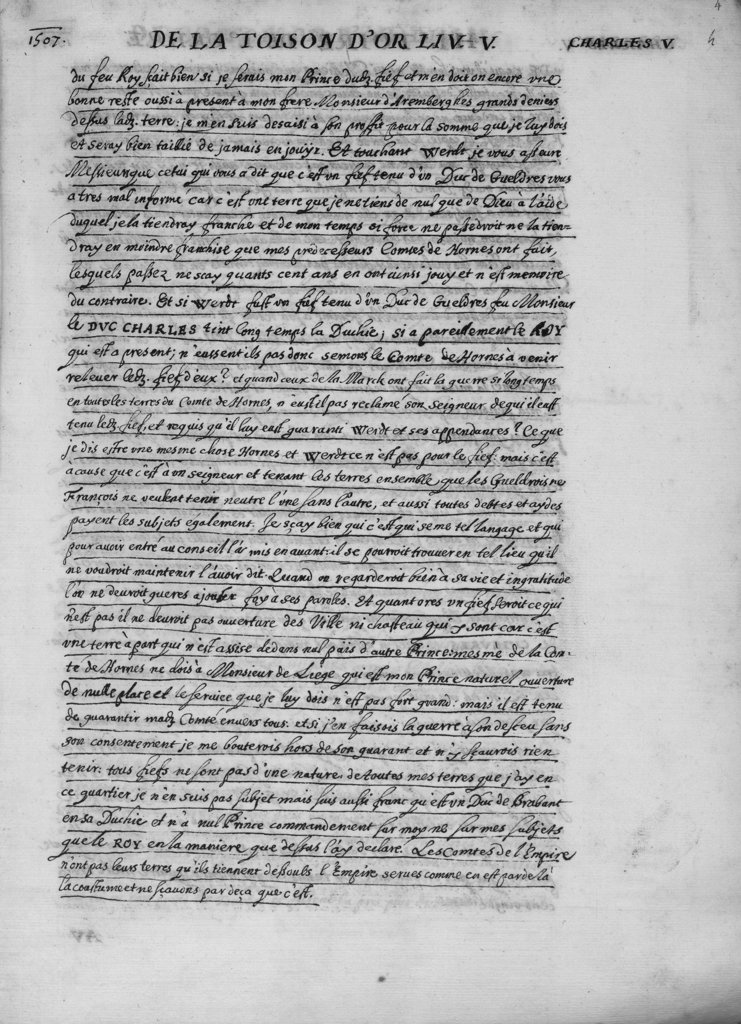 1507. DE LA TOISON D'OR LIV. V. CHARLES V.
du feu Roy sçait bien si je serais mon Prince dudz. fief et m'en doit on encore une
bonne reste oussi à present à mon frere Monsieur d'Aremberg les grands deniers
dessus ladz. terre: je m'en suis desaisi à son proffit pour la somme que je luy dois
et seray bien taillié de jamais en jouÿr. Et touchant Werdt je vous asseure
Messieurs que celui qui vous a dit que c'est un fief tenu d'un Duc de Gueldres vous
a tres mal informe car c'est ont terre que je ne tiens de nul que de Dieu à l'aide
duquel je la tiendray franche et de mon temps si force ne passe droit ne la tien-
dray en moindre franchise que mes predecesseurs Comtes de Hornes ont fait,
lesquels passez ne scay quants cent ans en ont ainsi jouy et n'est memoire
du contraire. Et si Werdt fust un fief tenu d'un Duc de Gueldres feu Monsieur
le DUC CHARLES tint long temps la Duchie; si a pareillement le ROY
qui est a present; n'eussent ils pas donc semons le Comte de Hornes à venir
relever ledz. fief d'eux? et quand ceux de la Marck ont fait la guerre si longtemps
en toutes les terres du Comte de Hornes, n'eust il pas reclamé son seigneur de qui il eust
tenu ledz fief, et requis qu'il luy eust guaranti Werdt et ses appendances? Ce que
je dis estre une mesme chose Hornes et Werdt ce n'est pas pour le fief: mais c'est
a cause que c'est à un seigneur et tenant les terres ensemble, que les Gueldrois ne
François ne veulent tenir neutre l'une sans l'autre, et aussi toutes debtes et aydes
payent les subjets également. Je sçay bien qui c'est qui seme tel langage et qui
pour avoir entré au conseil l'a mis en avant: il se pourroit trouver en tel lieu qu'il
ne voudroit maintenir l'avoir dit. Quand on regarderoit bien à sa vie et ingratitude
l'on ne devroit gueres ajouter foy a ses paroles. Et quant ores un fief seroit ce qui
n'est pas il ne devroit pas ouverture des Ville ni chasteau qui y sont car c'est
une terre à part qui n'est assise dedans nul païs d'autre Prince: mesme de la Com-
te de Hornes ne dois à Monsieur de Liege qui est mon Prince naturel ouverture
de nulle place et le service que je luy dois n'est pas fort grand: mais il est tenu
de guarantir madz Comté envers tous: et si j'en faisois la guerre à son desceu sans
son consentement je me bouterois hors de son guarant et n'y sçaurois rien
tenir: tous fiefs ne sont pas d'une nature, de toutes mes terres que j'ay en
ce quartier je n'en suis pas subjet mais suis aussi franc qu'est un Duc de Brabant
en sa Duchie et n'a nul Prince commandement sur moy ne sur mes subjets
que le ROY en la maniere que dessus l'ay declaré. Les Comtes de l'Empire
n'ont pas leurs terres qu'ils tiennent dessoubs l'Empire serves comme en est par de là
la coustume et ne sçavons par deça que c'est.